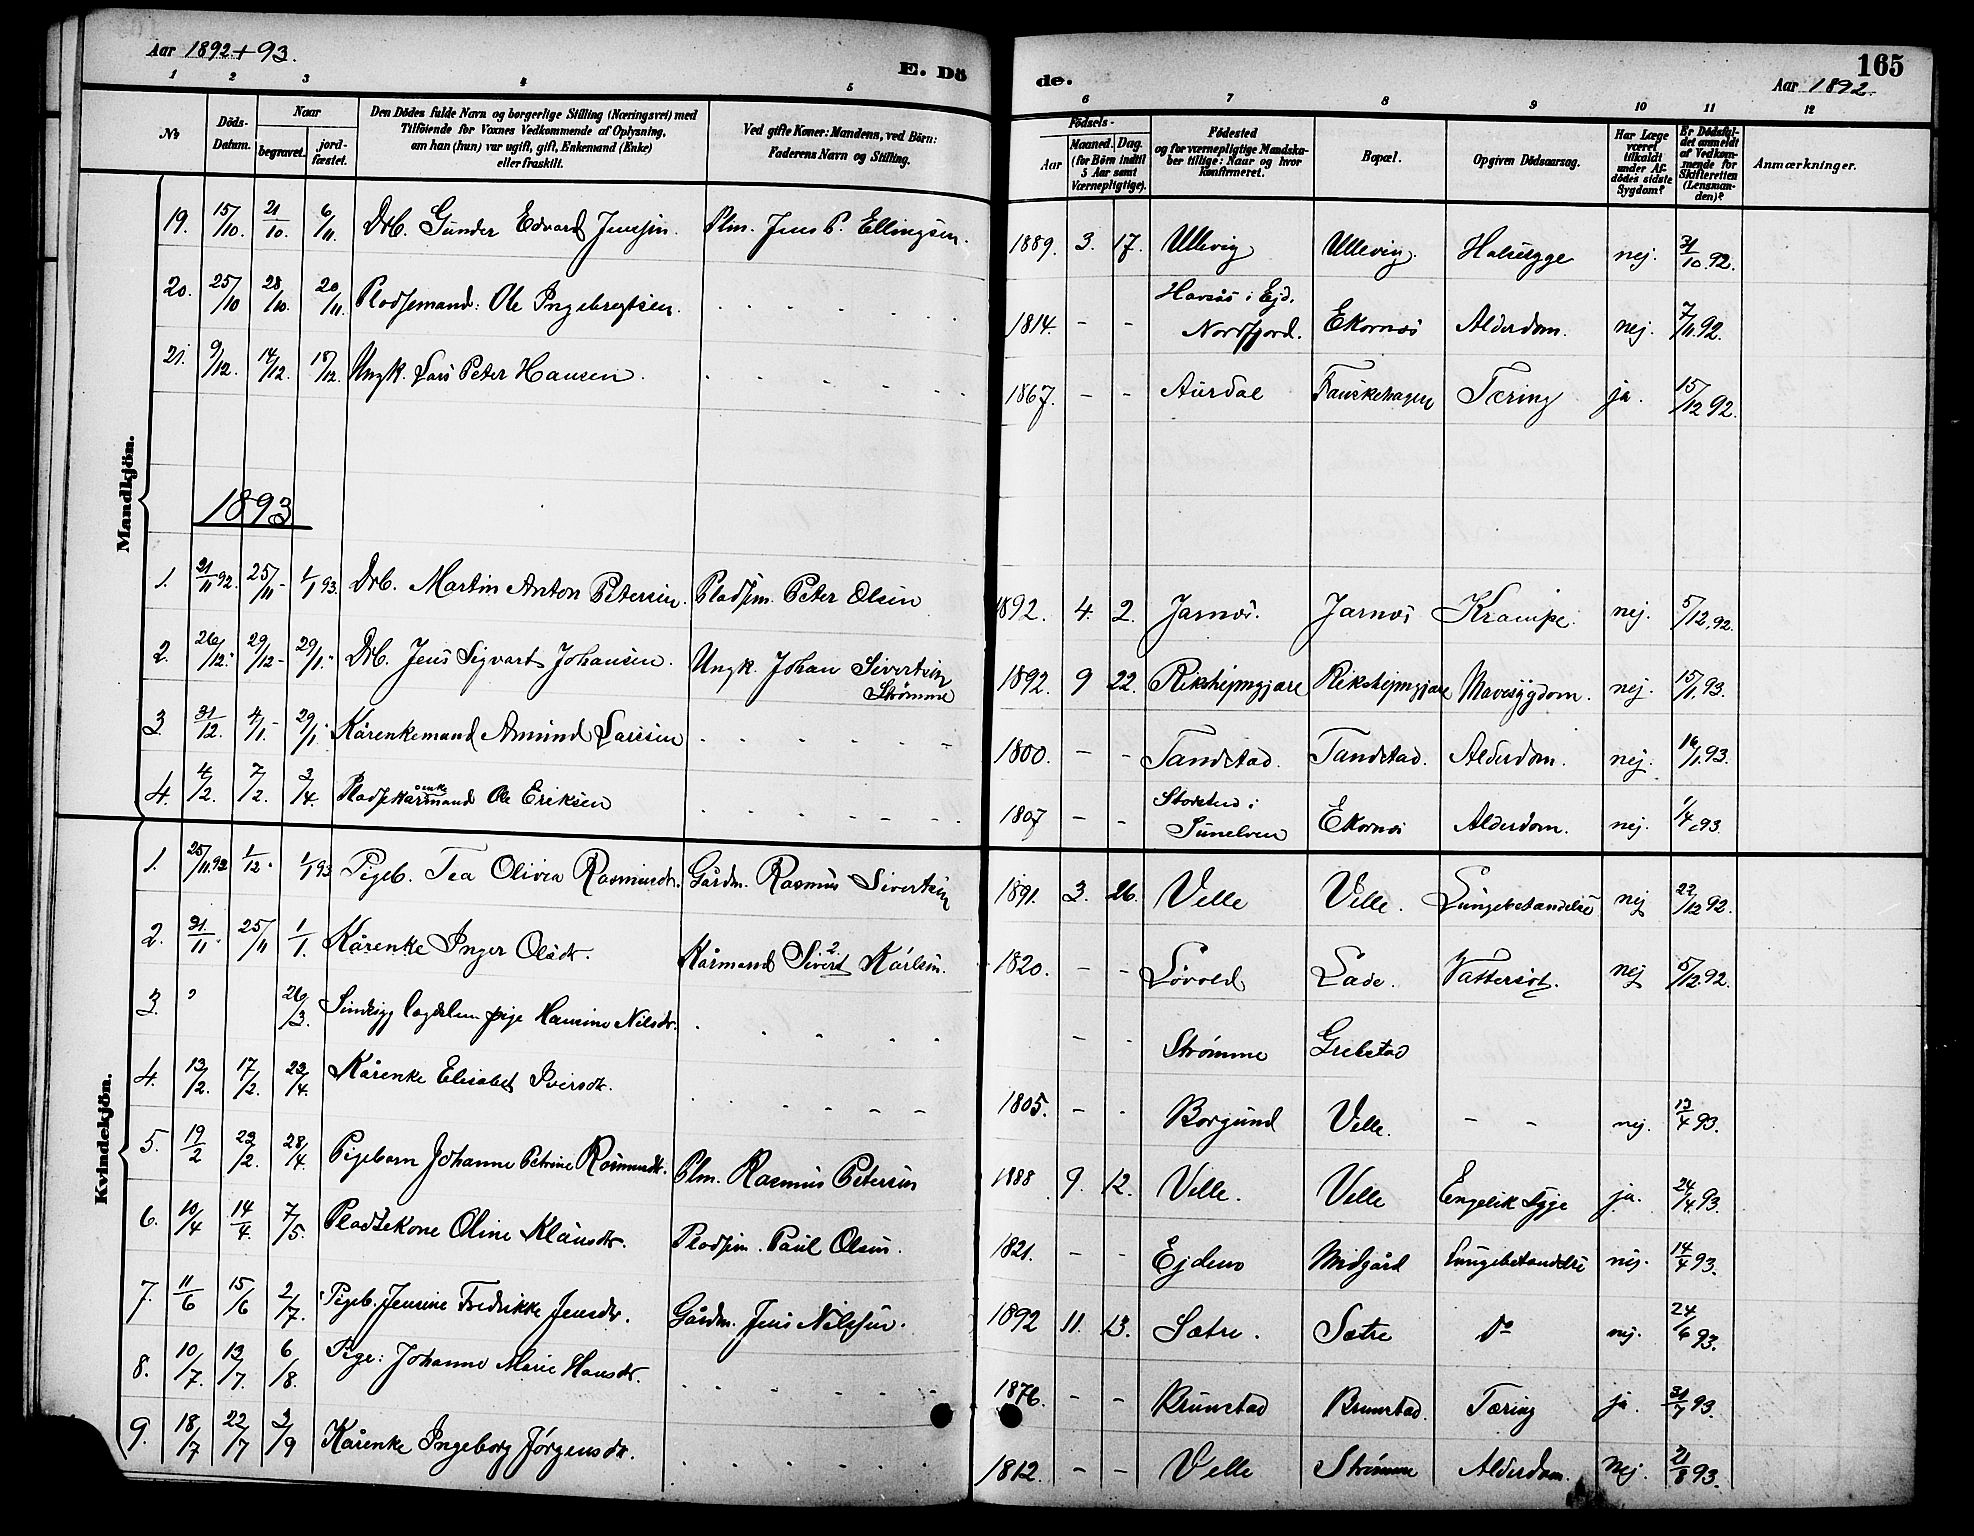 Aar 1892+93.
E. Dö
de.
165
Aar 1892.
1 2 3 4 5
6 7 8 9 10 11 12
No
Döds-Datum.
Naar
begravet.
jord-fæstet.
Den Dödes fulde Navn og borgerlige Stilling (Næringsvei) med
Tilföiende for Voxnes Vedkommende af Oplysning,
om han (hun) var ugift, gift, Enkemand (Enke)
eller fraskilt.
Ved gifte Koner: Mandens, ved Börn:
Faderens Navn og Stilling.
Födsels-
Aar
Maaned. Dag.
(for Börn indtil
5 Aar samt
Værnepligtige).
Födested
og for værnepligtige Mandska-
ber tillige: Naar og hvor
konfirmeret.
Bopæl.
Opgiven Dödsaarsag.
Har Læge
været
tilkaldt
under Af-
dödes sidste
Sygdom?
Er Dödsfal-
det anmeldt
af Vedkom-
mende for
Skifteretten
(Lensman-
den)?
Anmærkninger.
Mandkjön.
19. 15/10. 21/10. 6/11. Drb. Gunder Edvard Jensen. Plm. Jens P. Ellingsen. 1889. 3. 17. Ullevig Ullevig. Halssyge nej. 31/10.92.
20. 25/10 28/10. 20/11. Pladsemand: Ole Ingebregtsen. 1814. - - Havsås i Ejd. Nordfjord. Ekornøs Alderdom. nej. 7/11.92.
21. 9/12. 14/12. 18/12. Ungk. Lars Peter Hansen. 1867. - - Aurdal Fauskehagen Tæring ja. 15/12 92.
1893
1. 21/11 92. 25/11 - 1/1 93. Drb. Martin Anton Petersen. Pladsm. Peter Olsen 1892. 4. 2. Jarnøs. Jarnøs Krampe. nej. 5/12.92.
2. 26/12. 29/12 - 29/1. Drb. Jens Sigvart Johansen. Ungk. Johan Sivertsen Strømme 1892. 9 22. Rekshejmgjære Rekshejmgjære Mavesygdom. nej. 15/1.93.
3 31/12. 4/1. - 29/1. Kårenkemand Amund Larsen 1800. - - Tandstad. Tandstad. Alderdom. nej. 16/1.93.
4. 4/2. 7/2. 3/4. Pladskårmand enke Ole Eriksen 1807 - - i Sunelven Ekornøs Alderdom. nej. 1/4.93.
Kvindekjön.
1. 25/11.92 1/12. 1/1 93 Pigeb. Tea Olivia Rasmusdr. Gårdm. Rasmus Sivertsen 1891. 3. 26. Velle Velle. Lungebetændelse nej 22/12 92.
2. 21/11. 25/11 1/1. Kårenke Inger Olsdr. Kårmand Sivert Karlsen. 2 1820. - - Løvold Lade. Vattersot. nej 5/12.92.
3. " 26/3. Sindssyg lægdslem pige Hansine Nilsdr. - Strømme Grebstad
4. 13/2. 17/2. 23/4. Kårenke Elisabet Iversdr. 1805. - - Borgund Velle. - - nej. 13/4 93.
5. 19/2 23/2. 28/4. Pigebarn Johanne Petrine Rasmusdr. Plm. Rasmus Petersen 1888 9. 12. Velle. Velle Engelsk Syge ja. 24/4.93.
6. 10/4 14/4. 7/5. Pladsekone Oline Klausdr. Pladsm. Paul Olsen. 1821. - - Ejdem Midgård Lungebetændelse nej. 14/4 93.
7. 11/6 15/6 2/7. Pigeb. Jensine Fredrikke Jensdr. Gårdm. Jens Nilssen. 1892 11. 13. Sætre. Sætre Do nej. 24/6 93.
8. 10/7. 13/7. 6/8. Pige: Johanne Marie Hansdr. 1876. - - Brunstad Brunstad. Tæring ja. 31/7 93.
9. 18/7 22/7 3/9 Kårenke Ingeborg Jørgensdr. 1812. - - Velle Strømme Alderdom. Nej. 21/8 93.